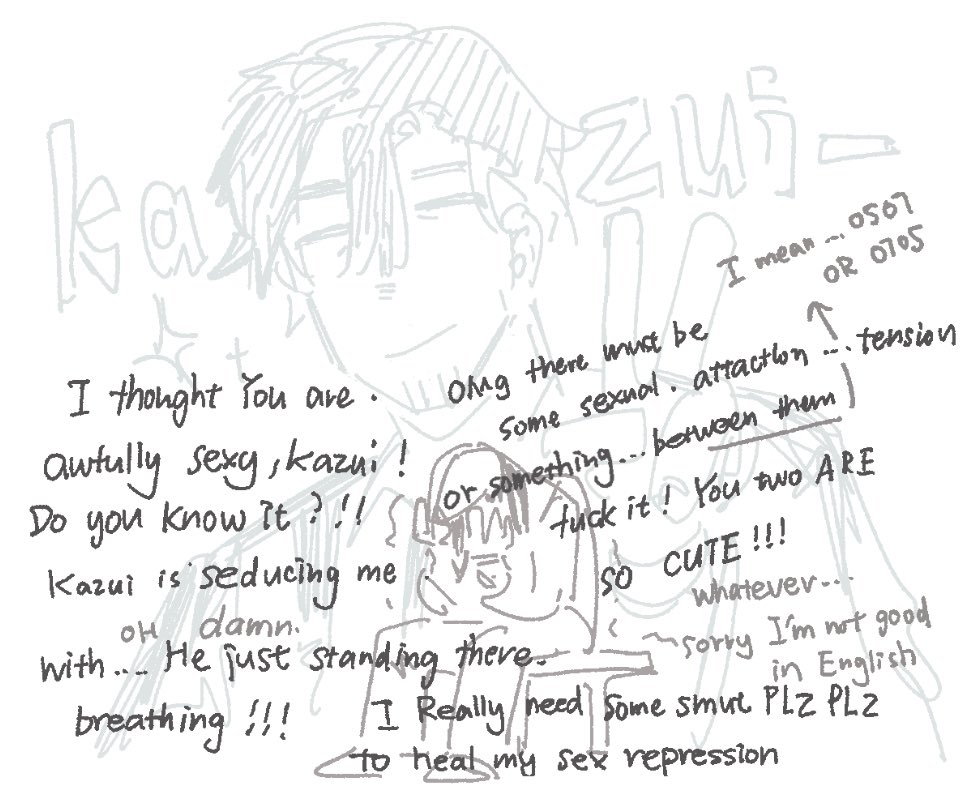 kazui-
I mean ... 0507
OR 0705
I thought You are.
awfully sexy, kazui!
Do you know it?!!
Kazui is seducing me
OH damn.
with.... He just standing there.
breathing !!!
OMg there must be
some sexual. attaction .... tension
or something... between them
fuck it! You two ARE
SO CUTE!!!
whatever...
sorry I'm not good
in English
I Really need some smut PLZ PLZ
to heal my sex repression